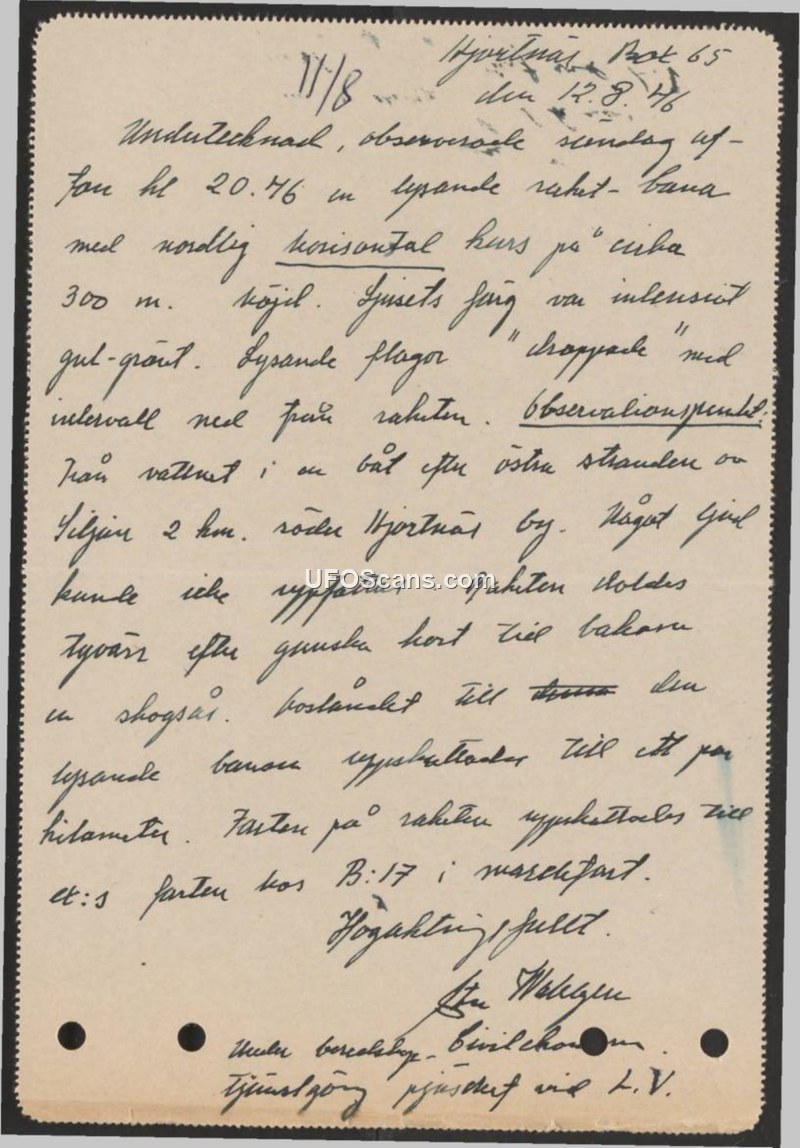 Hjortnäs, Box 65
11/8
den 12.8.46
Undertecknad, observerade söndag af-
ton kl 20.46 en lysande raket-bana
med nordlig horisontal kurs på cirka
300 m. höjd. Ljusets färg var intensivt
gul-grönt. Lysande flagor "droppade" med
intervall ned från raketen. Observationspunkt:
Från vattnet i en båt efter östra stranden av
Siljan 2 km. söder Hjortnäs by. Något ljud
kunde icke uppfattas. Raketen doldes
tyvärr efter ganska kort tid bakom
en skogsås. Avståndet till den
lysande banan uppskattades till ett par
kilometer. Farten på raketen uppskattades till
farten hos B:17 i marschfart.
Högaktningsfullt.
Under beredskap- Civilekonom.
tjänstgöring vid L.V.
UFOScans.com